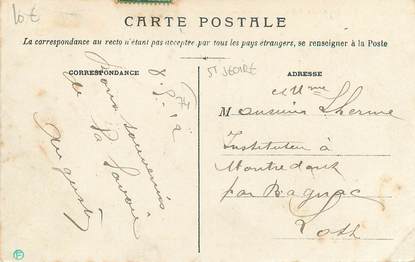 10 €
CARTE POSTALE
La correspondance au recto n'étant pas acceptée par tous les pays étrangers, se renseigner à la Poste
CORRESPONDANCE
ADRESSE
Bons souvenirs
de
la Savoie
Auguste
Mme
Monsieur Lherme
Instituteur à
par Bagnac
Lot